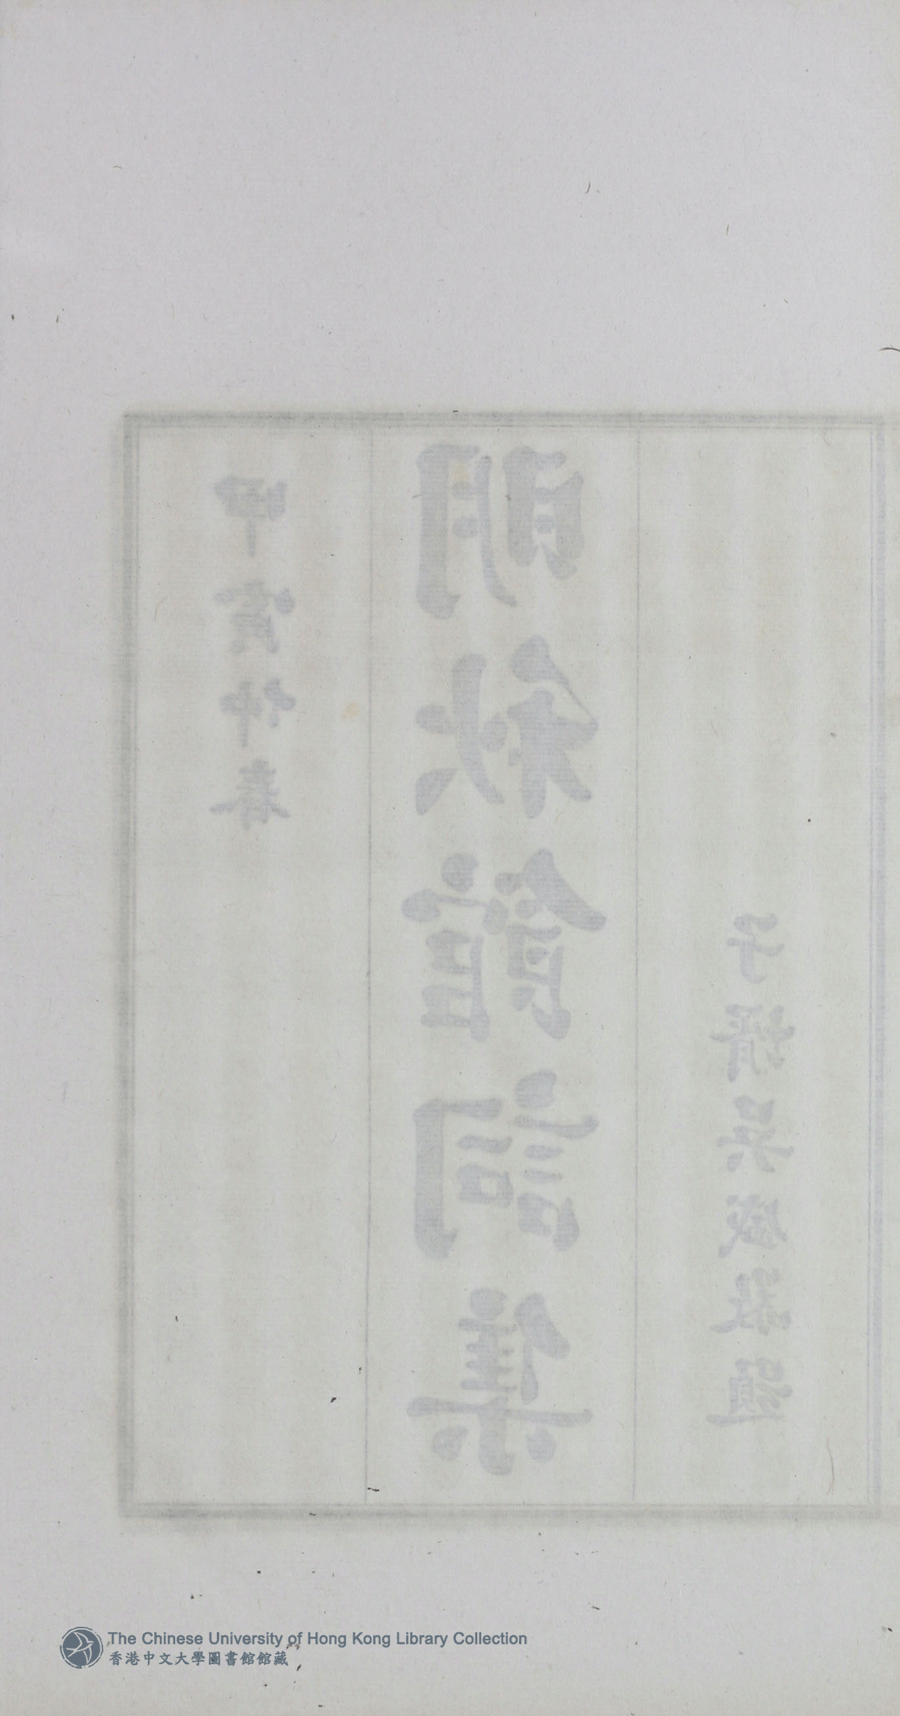 甲寅仲春
明秋館詞集
吳敬題
The Chinese University of Hong Kong Library Collection
香港中文大學圖書館館藏